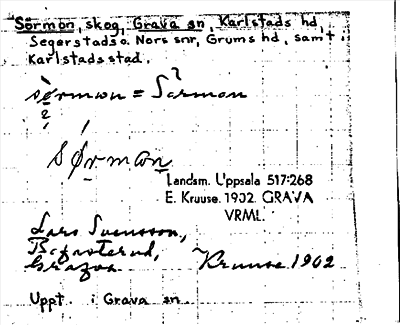 Sörmon, skog, Grava sn, Karlstads hd,
Segerstads o. Nors snr, Grums hd, samt
Karlstads stad.
sørmωn = Sörmon
?
sørmωn
Landsm. Uppsala 517:268
E. Kruuse. 1902. GRAVA
VRML.
Lars Svensson,
Grava
Kruuse 1902
Uppt. i Grava sn